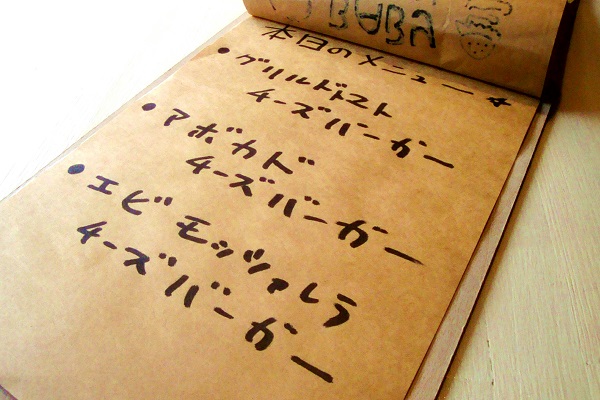 本日のメニュー
• グリルドトマト
チーズバーガー
• アボカド
チーズバーガー
• エビモッツァレラ
チーズバーガー